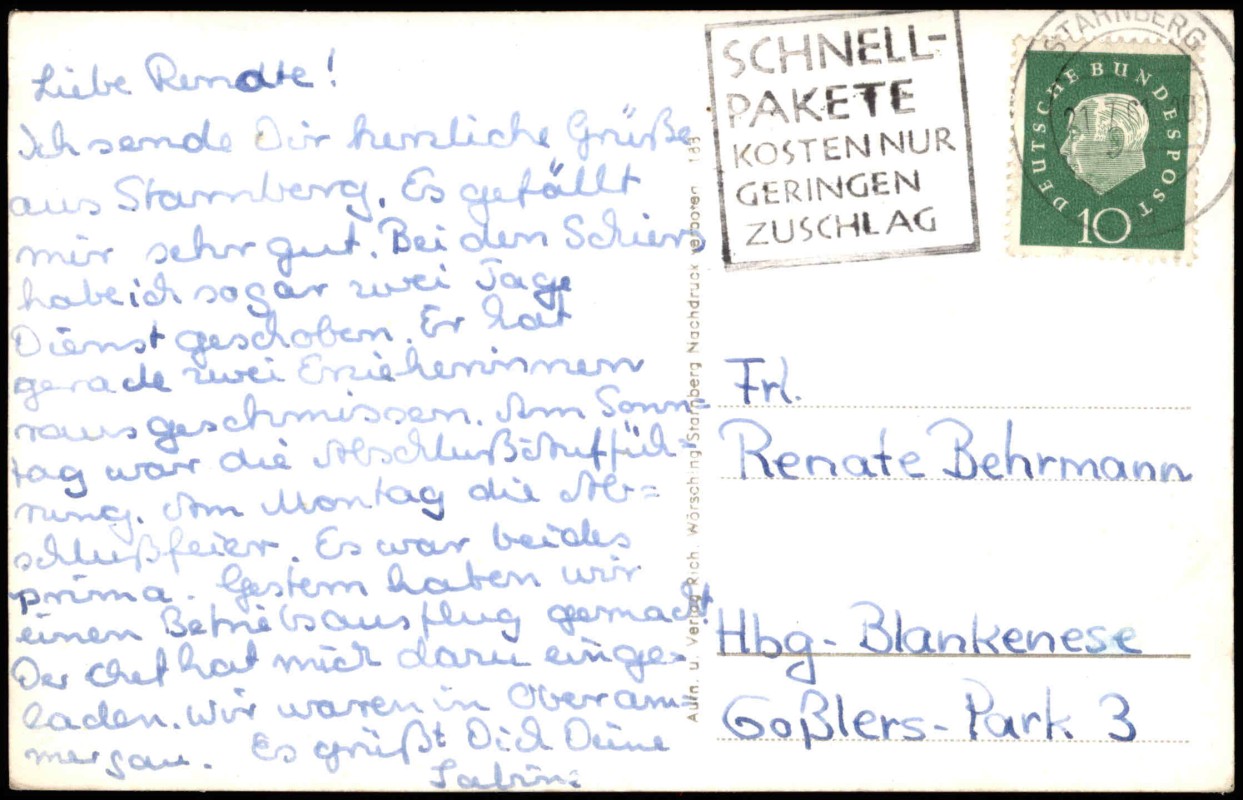 Liebe Renate!
Ich sende Dir herzliche Grüße
aus Starnberg. Es gefällt
mir sehr gut. Bei den Schiers
habe ich sogar zwei Tage
Dienst geschoben. Er hat
gerade zwei Erzieherinnen
rausgeschmissen. Am Sonn=
tag war die Abschluß-Auffüh-
rung. Am Montag die Ab=
schlußfeier. Es war beides
prima. Gestern haben wir
einen Betriebsausflug gemacht!
Der Chef hat mich dazu einge-
laden. Wir waren in Oberam=
mergau. Es grüßt Dich Deine
Sabine
Aufn. u. Verlag Rich. Wörsching Starnberg Nachdruck verboten 189
SCHNELL-
PAKETE
KOSTEN NUR
GERINGEN
ZUSCHLAG
STARNBERG
DEUTSCHE BUNDESPOST
10
Frl.
Renate Behrmann
Hbg-Blankenese
Goßlers-Park 3